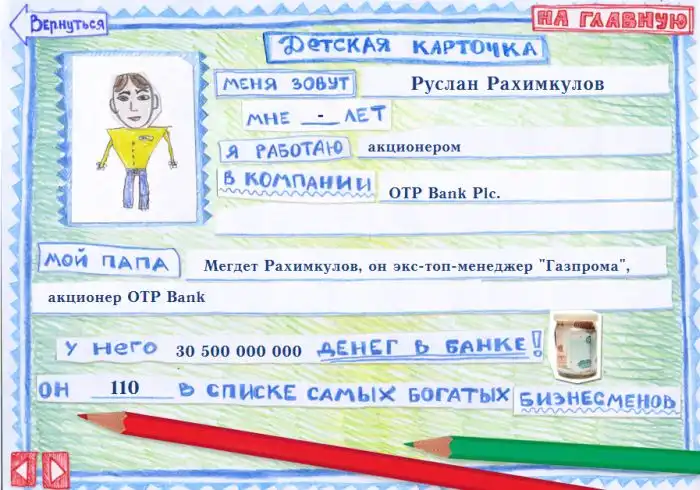 Вернуться
НА ГЛАВНУЮ
ДЕТСКАЯ КАРТОЧКА
МЕНЯ ЗОВУТ Руслан Рахимкулов
МНЕ - ЛЕТ
Я РАБОТАЮ акционером
В КОМПАНИИ OTP Bank Plc.
МОЙ ПАПА Мегдет Рахимкулов, он экс-топ-менеджер "Газпрома",
акционер OTP Bank
У НЕГО 30 500 000 000 ДЕНЕГ В БАНКЕ!
ОН 110 В СПИСКЕ САМЫХ БОГАТЫХ БИЗНЕСМЕНОВ